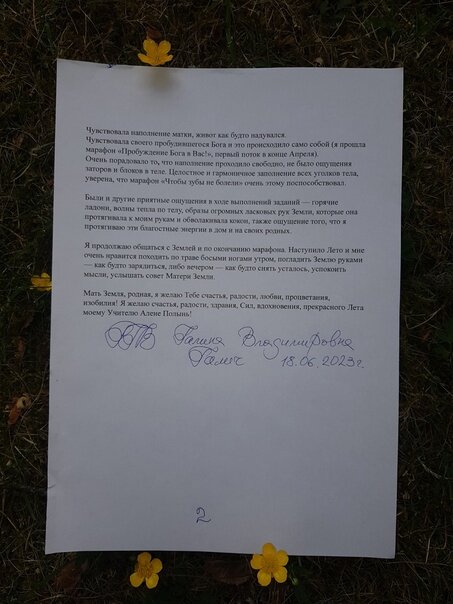 Чувствовала наполнение матки, живот как будто надувался.
Чувствовала своего пробудившегося Бога и это происходило само собой (я прошла
марафон «Пробуждение Бога в Вас!», первый поток в конце Апреля).
Очень порадовало то, что наполнение проходило свободно, не было ощущения
заторов и блоков в теле. Целостное и гармоничное заполнение всех уголков тела,
уверена, что марафон «Чтобы зубы не болели» очень этому поспособствовал.
Были и другие приятные ощущения в ходе выполнений заданий — горячие
ладони, волны тепла по телу, образы огромных ласковых рук Земли, которые она
протягивала к моим рукам и обволакивала кокон, также ощущение того, что я
протягиваю эти благостные энергии в дом и на своих родных.
Я продолжаю общаться с Землей и по окончанию марафона. Наступило Лето и мне
очень нравится походить по траве босыми ногами утром, погладить Землю руками
— как будто зарядиться, либо вечером — как будто снять усталось, успокоить
мысли, услышать совет Матери Земли.
Мать Земля, родная, я желаю Тебе счастья, радости, любви, процветания,
изобилия! Я желаю счастья, радости, здравия, Сил, вдохновения, прекрасного Лета
моему Учителю Алене Полынь!
Галина Владимировна
18.06.2023г.
2